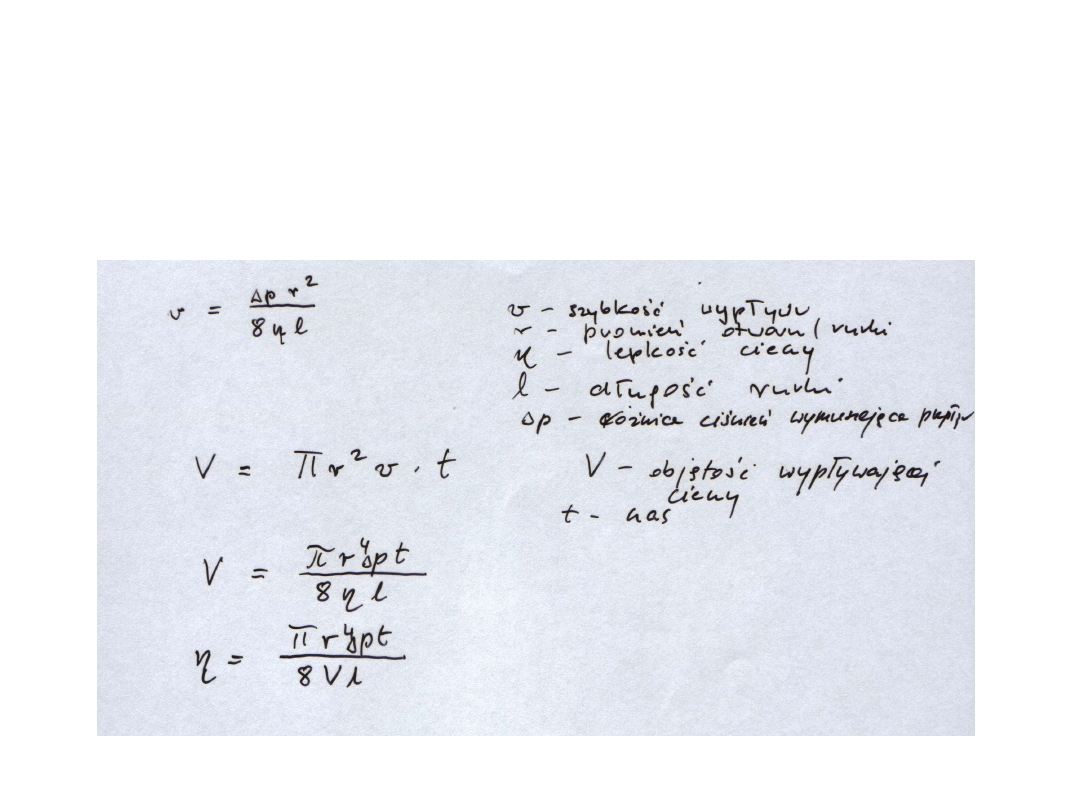 v = Δp r² / 8 η l
v – szybkość wypływu
r – promień otworu / rurki
η – lepkość cieczy
l – długość rurki
Δp – różnica ciśnień wymuszająca przepływ
V = π r² v · t
V – objętość wypływającej
cieczy
t – czas
V = π r⁴ Δp t / 8 η l
η = π r⁴ Δp t / 8 V l